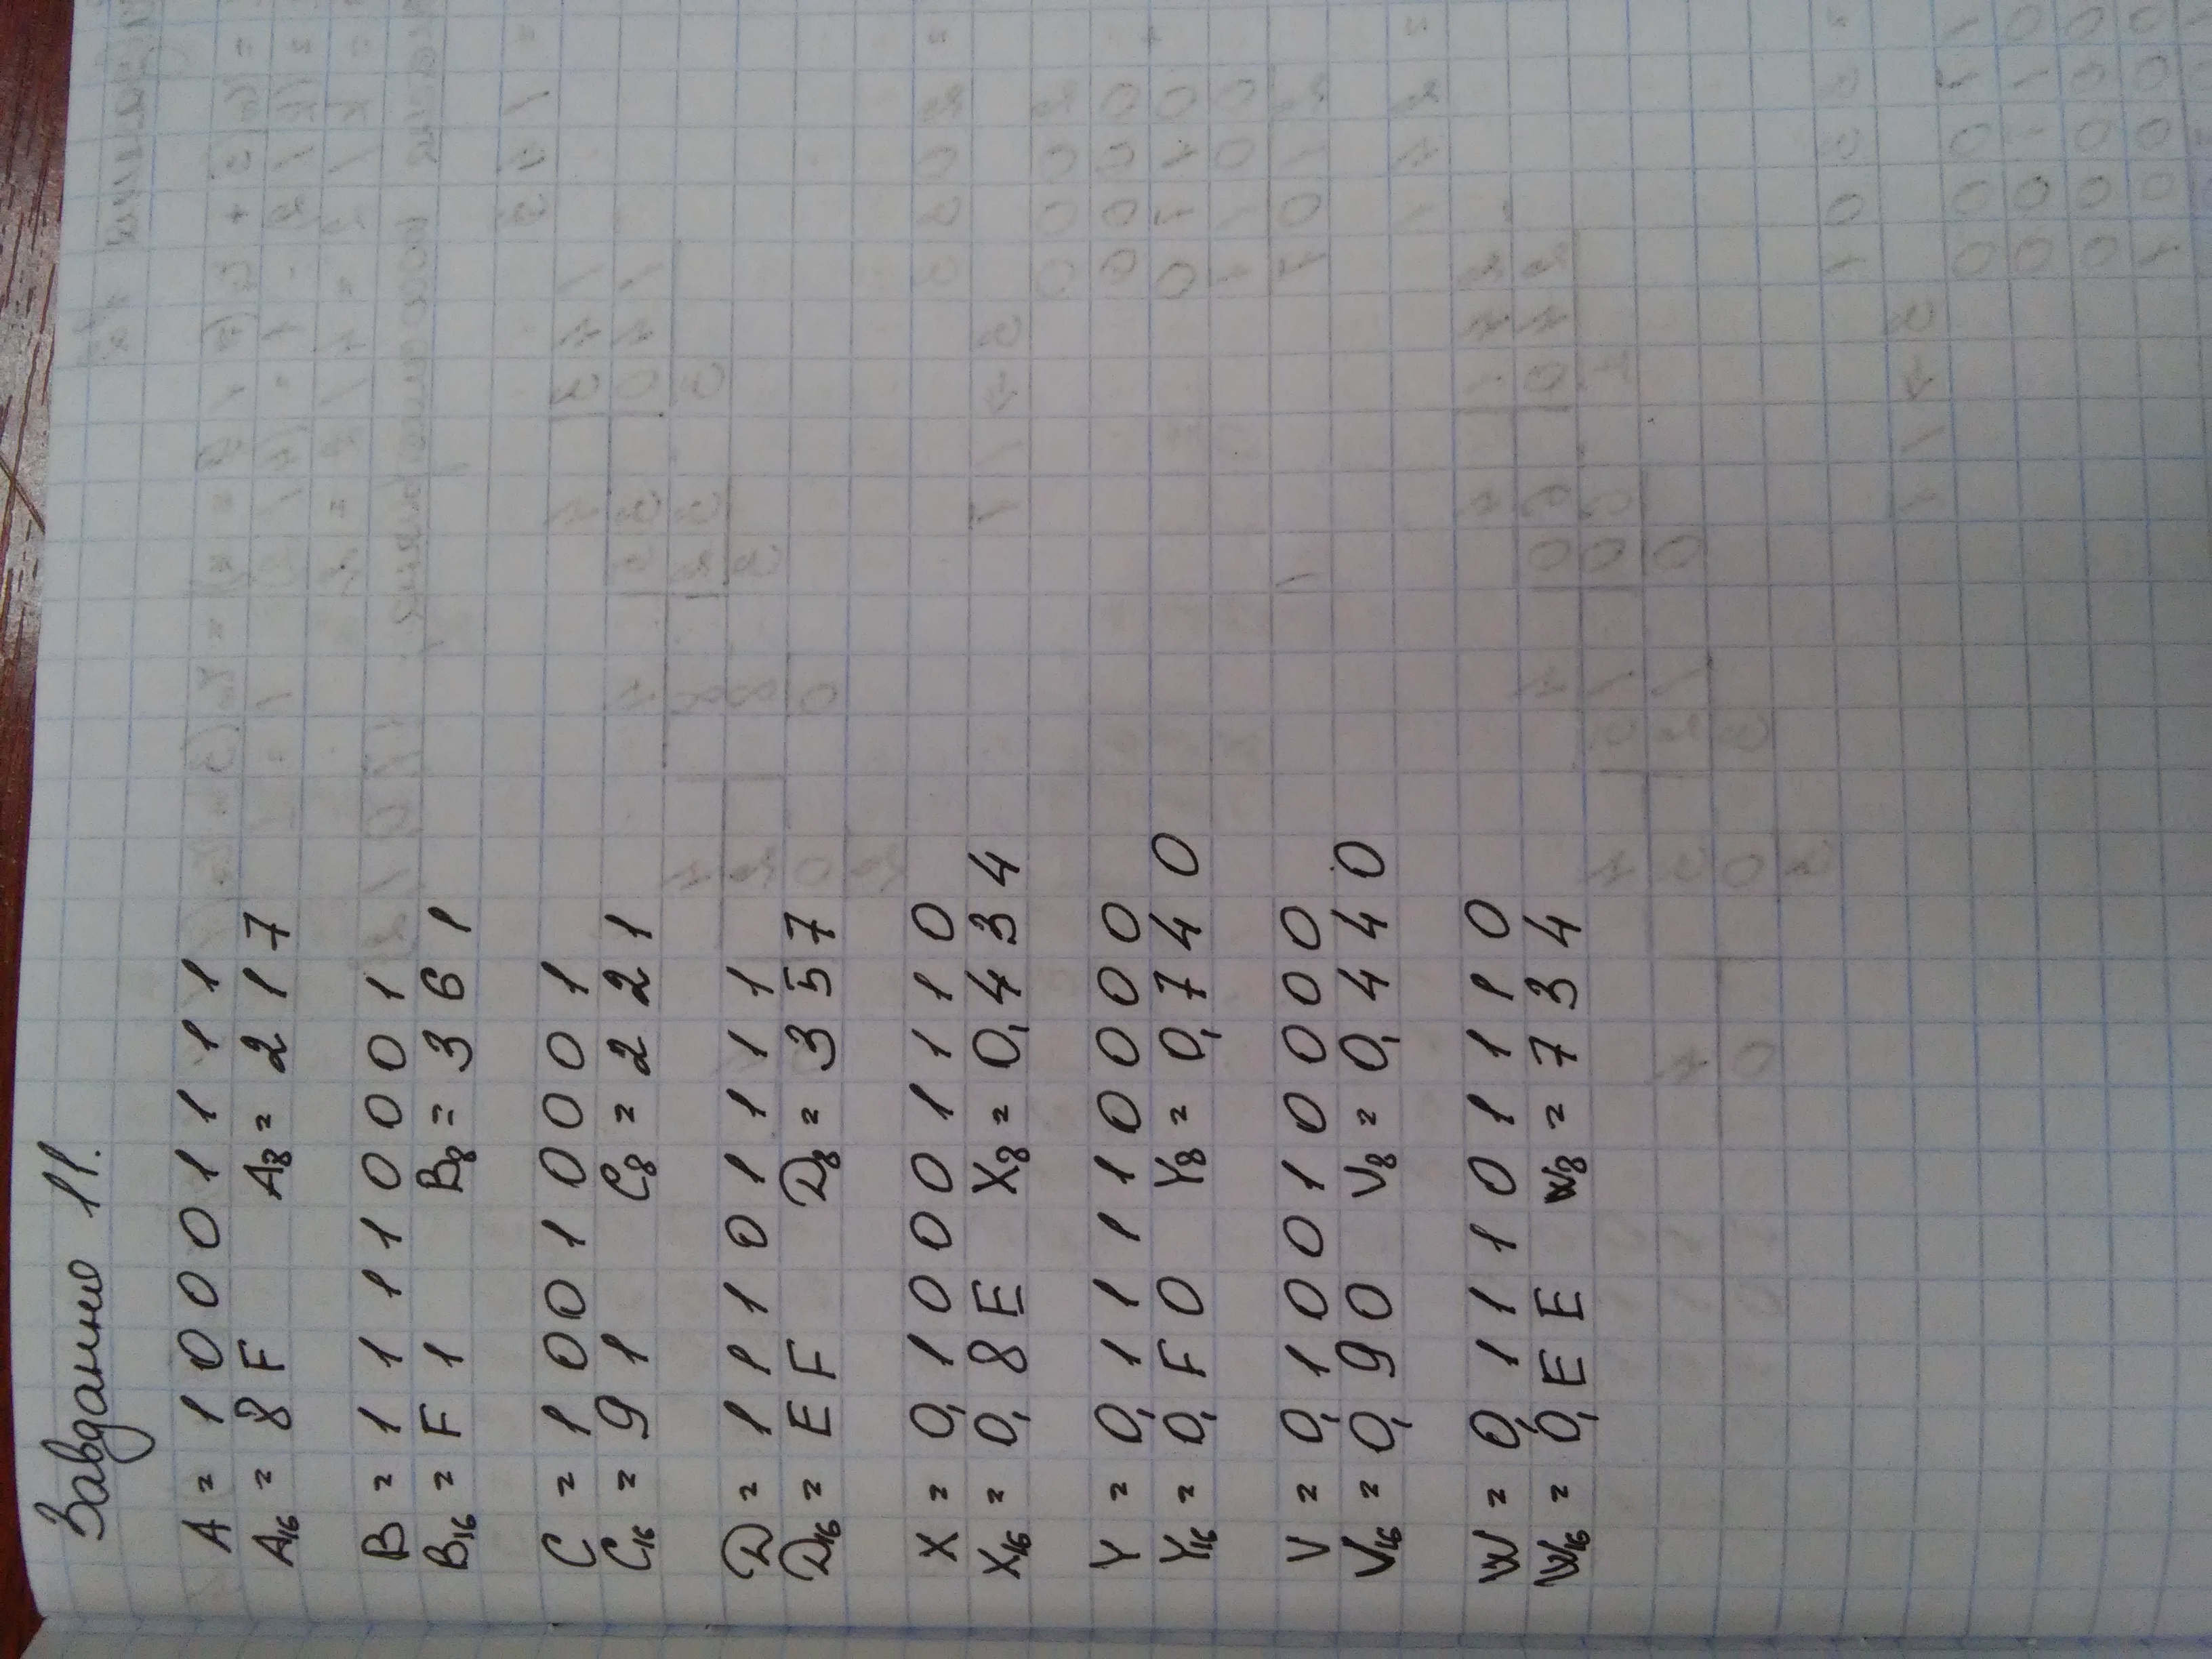 Завдання 11.
A = 10001111
A16 = 8F A8 = 217
B = 11110001
B16 = F1 B8 = 361
C = 10010001
C16 = 91 C8 = 221
D = 11101111
D16 = EF D8 = 357
X = 0,10001110
X16 = 0,8E X8 = 0,434
Y = 0,11110000
Y16 = 0,F0 Y8 = 0,740
V = 0,10010000
V16 = 0,90 V8 = 0,440
W = 0,11101110
W16 = 0,EE W8 = 734